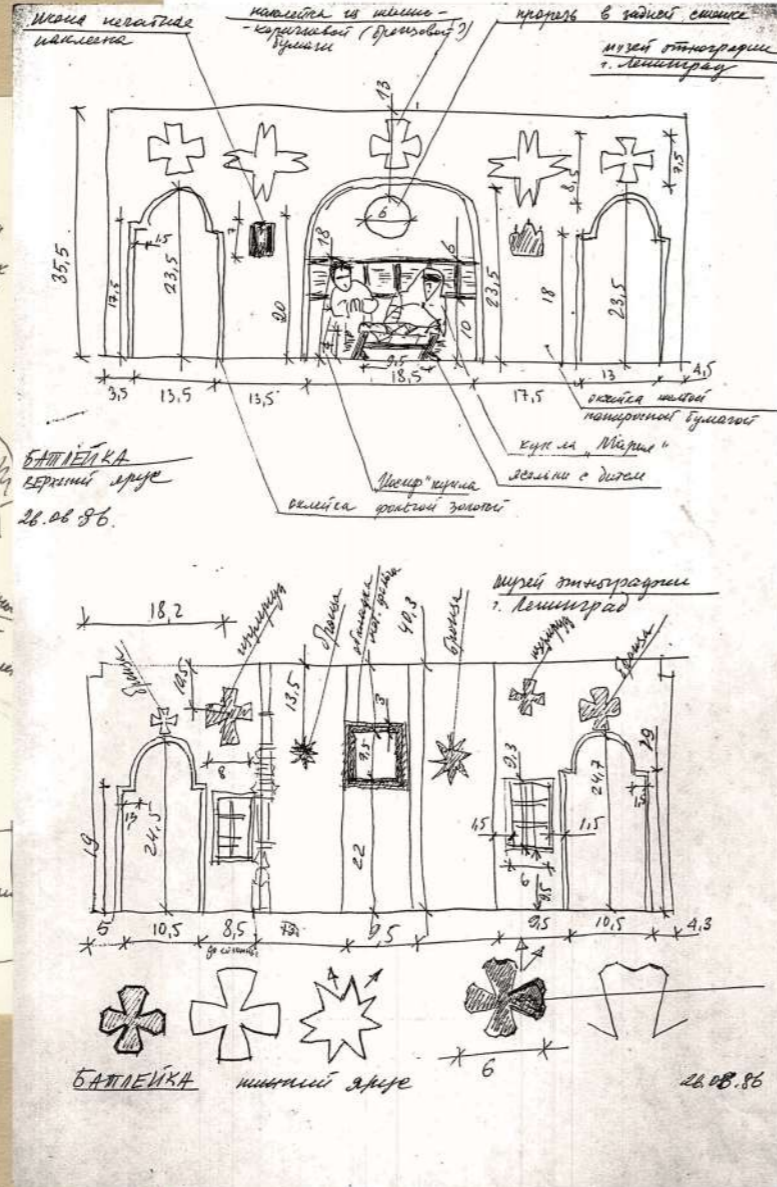 Икона печатная
наклеена
наклейка из темно-
-коричневой (бронзовой?)
бумаги
прорезь в задней стенке
музей этнографии
г. Ленинград
13
35,5
17,5
1,5
23,5
7
20
18
6
6
10
23,5
8,5
7,5
18
23,5
9,5
18,5
3,5
13,5
13,5
17,5
13
4,5
оклейка желтой
папиросной бумагой
кукла „Мария"
ясельки с дитем
„Иосиф" кукла
оклейка фольгой золотой
БАТЛЕЙКА
верхний ярус
26.08.86.
музей этнографии
г. Ленинград
18,2
бронза
изумруд
бронза
обкладка
фольга
40,3
бронза
изумруд
бронза
12,5
13,5
3
8
9,5
9,3
24,7
29
19
24,5
22
1,5
1,5
6
9,5
5
10,5
8,5
9,5
9,5
10,5
4,3
6
БАТЛЕЙКА нижний ярус
26.08.86